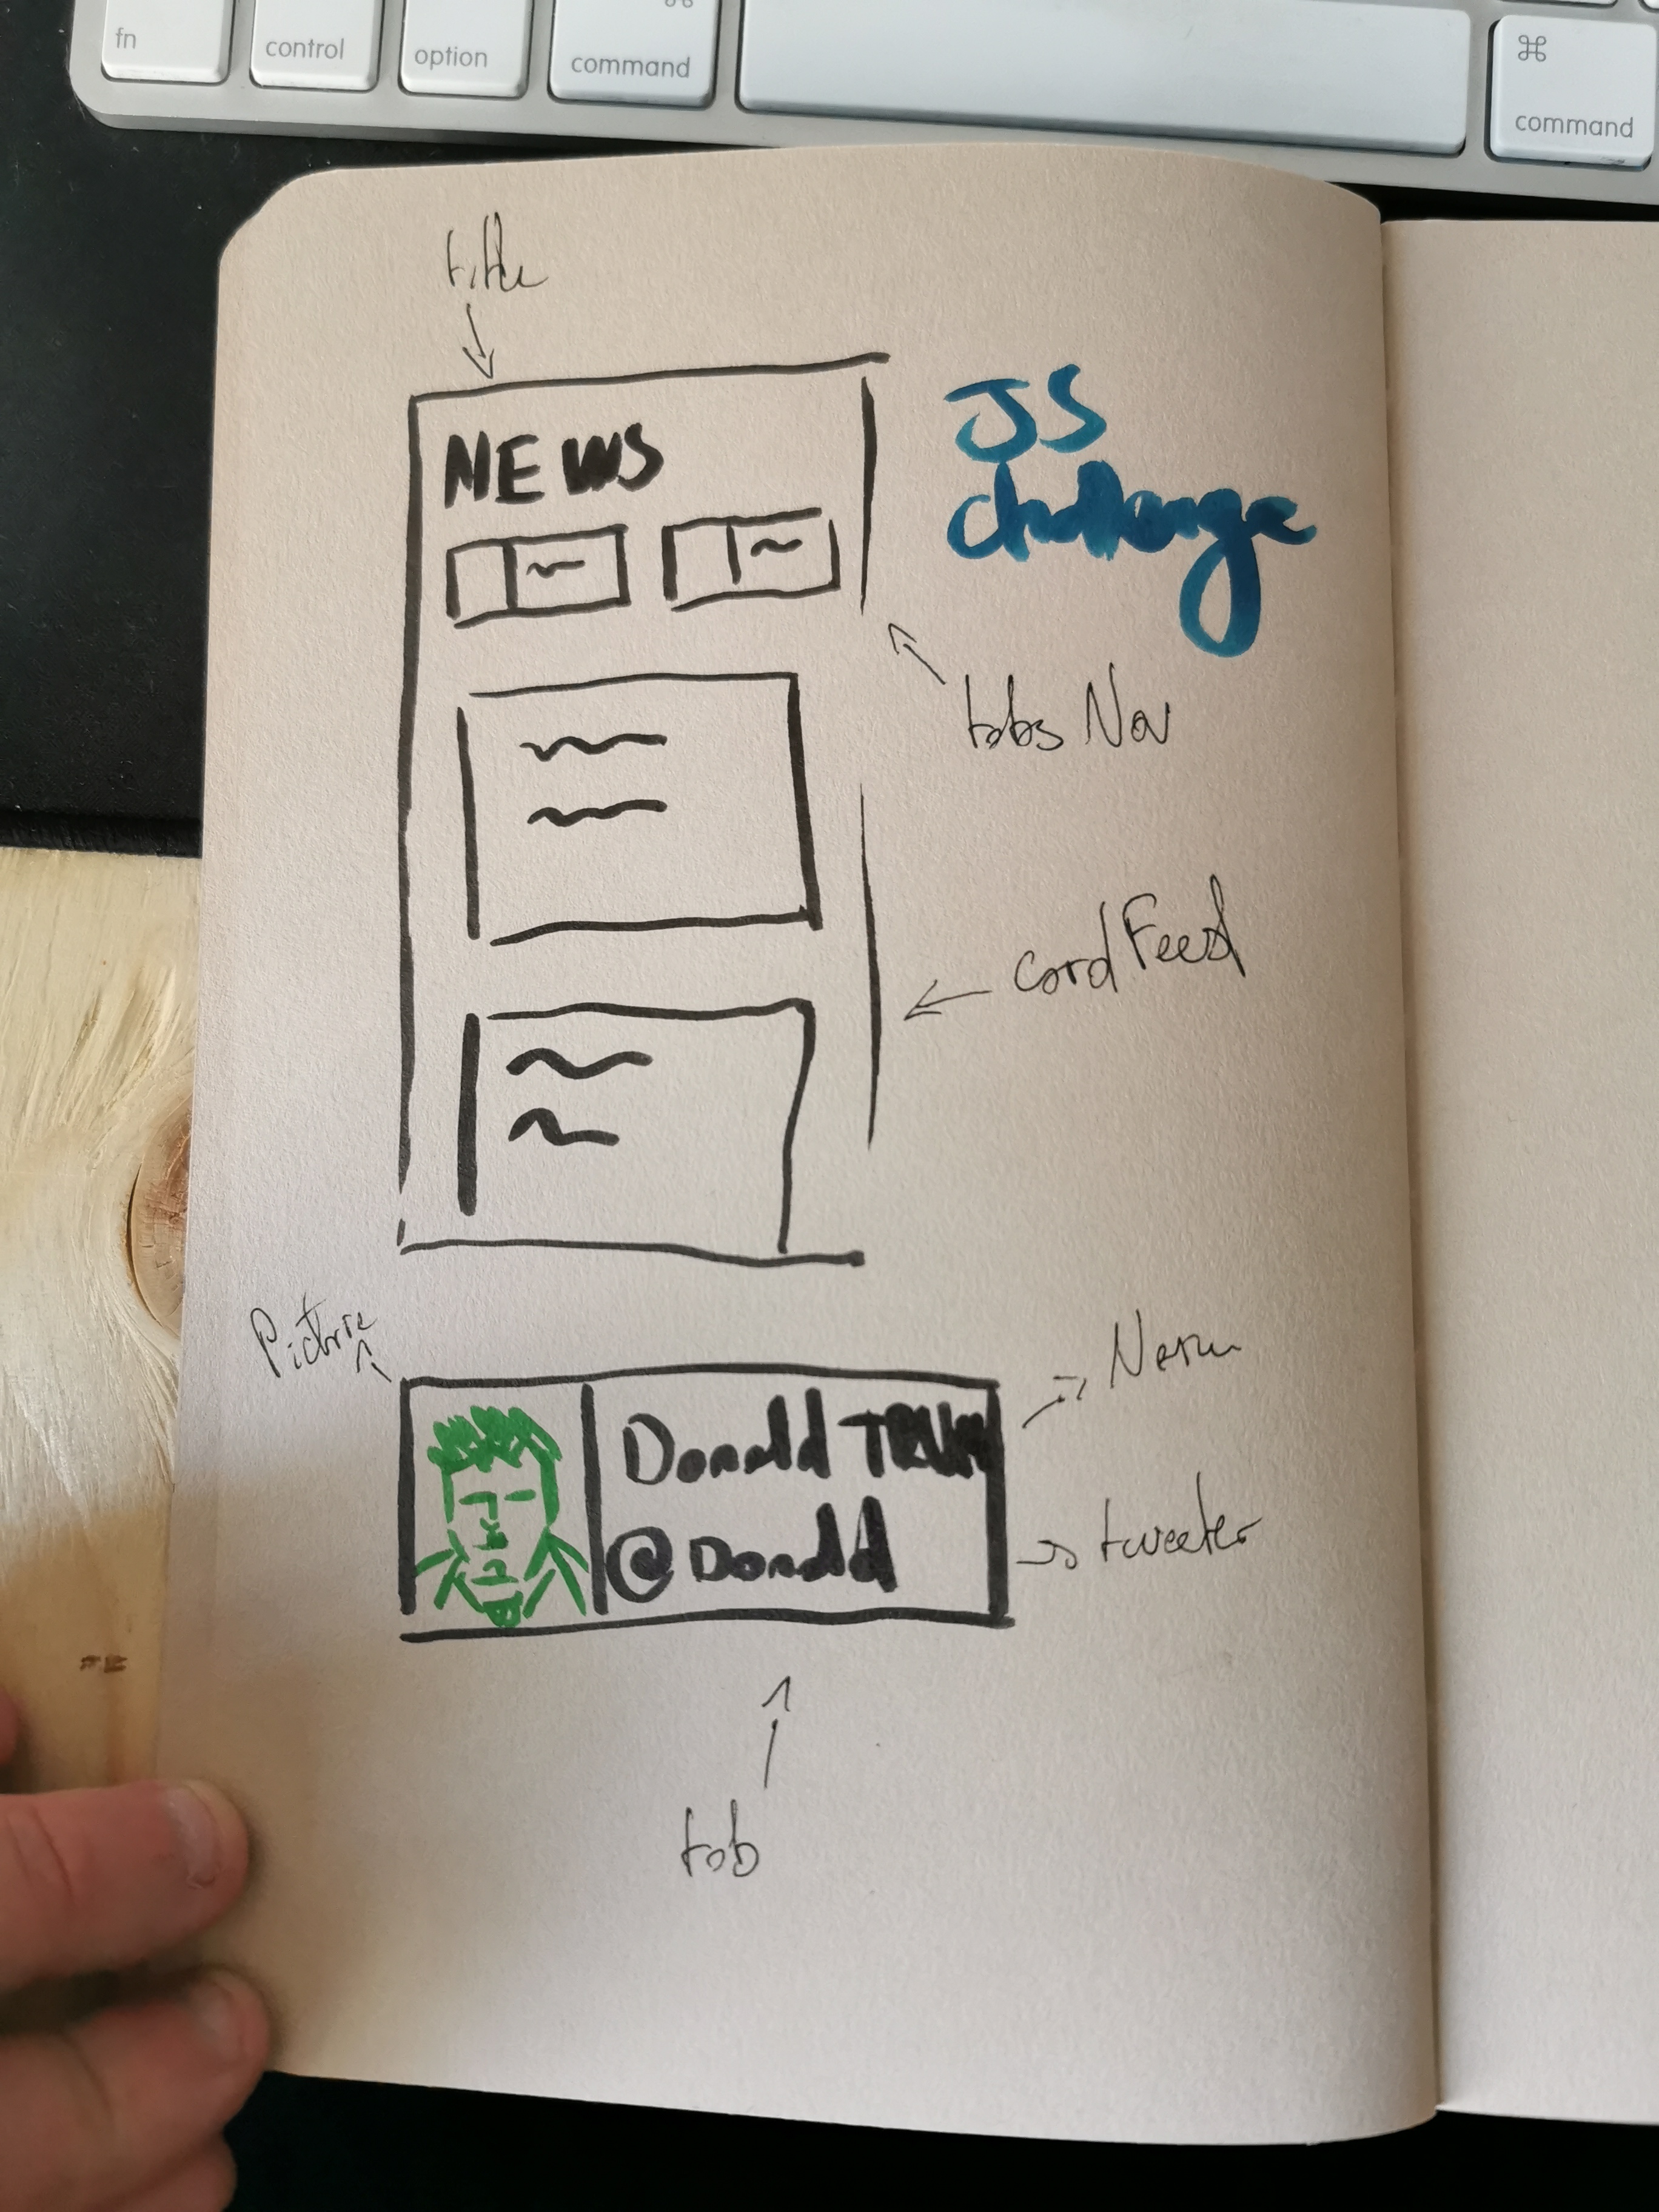 fn
control
option
⌘
command
⌘
command
title
NEWS
JS
challenge
tabs Nav
card Feed
Picture
Name
Donald TRUM
@Donald
tweeter
tab